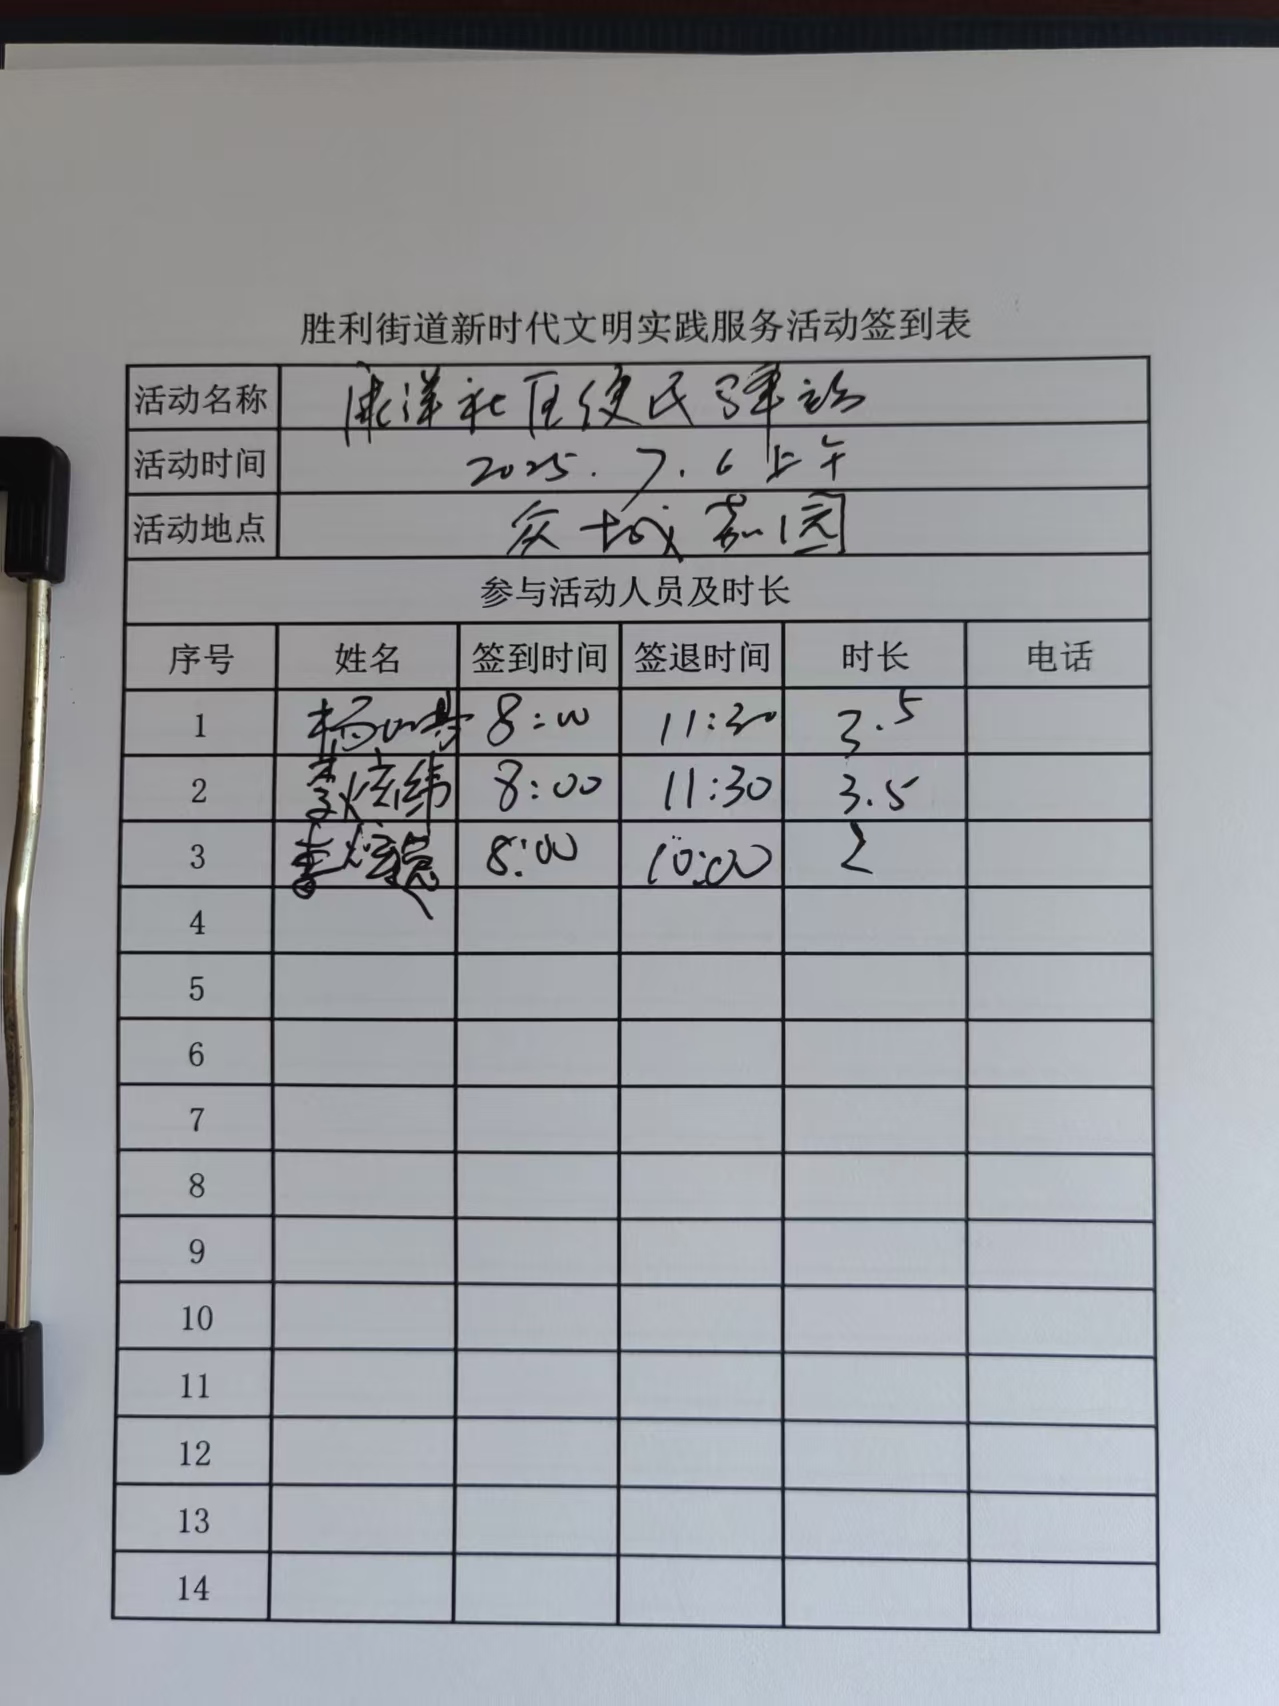 胜利街道新时代文明实践服务活动签到表
活动名称 康洋社区便民驿站
活动时间 2025.7.6上午
活动地点 众城嘉园
参与活动人员及时长
序号 姓名 签到时间 签退时间 时长 电话
1 杨 8:00 11:30 3.5
2 李炫纬 8:00 11:30 3.5
3 李 8:00 10:00 2
4
5
6
7
8
9
10
11
12
13
14